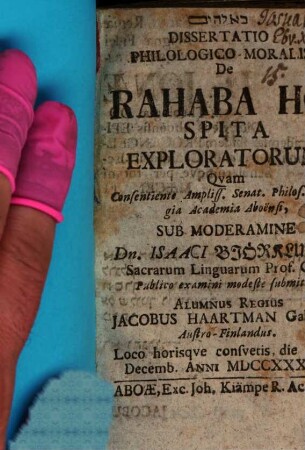 באלהים
DISSERTATIO
PHILOLOGICO-MORALIS
De
RAHABA HO
SPITA
EXPLORATORUM
Qvam
Consentiente Ampliss. Senat. Philos.
gia Academia Aboënsi,
SUB MODERAMINE
Dn. ISAACI BJÖRKLUN
Sacrarum Linguarum Prof.
Publico examini modeste submit
ALUMNUS REGIUS
JACOBUS HAARTMAN Ga
Austro-Finlandus.
Loco horisqve consvetis, die
Decemb. ANNI MDCCXXX
ABOÆ, Exc. Joh. Kiämpe R. Ac